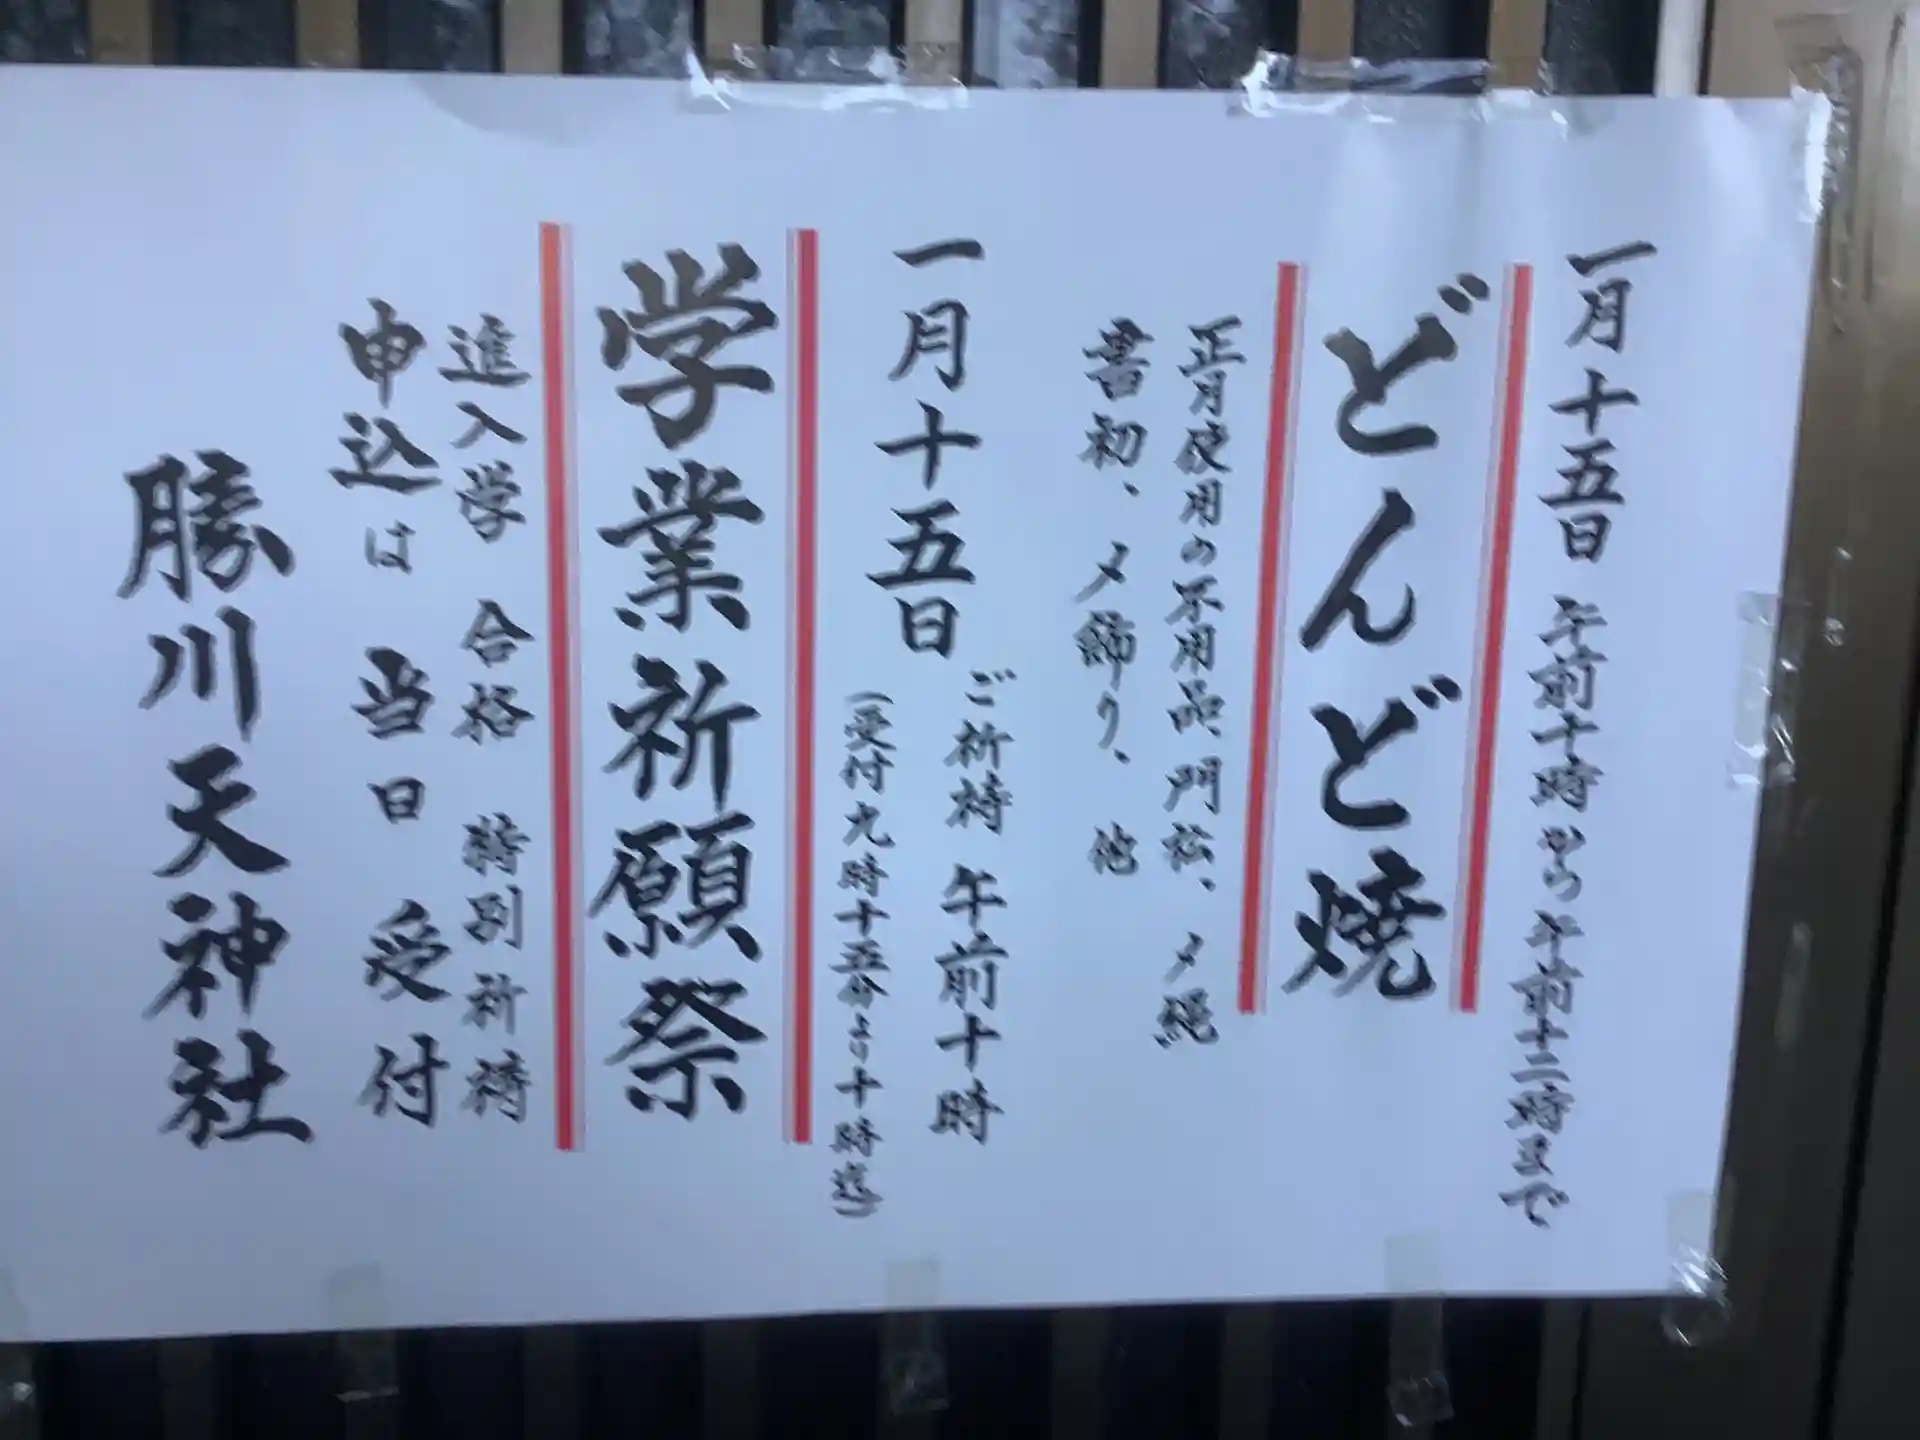 一月十五日 午前十時から午前十二時まで
どんど焼
正月使用の不用品、門松、〆縄
書初、〆飾り、他
一月十五日
ご祈祷 午前十時
(受付九時十五分より十時迄)
学業祈願祭
進入学 合格 特別祈祷
申込は 当日 受付
勝川天神社